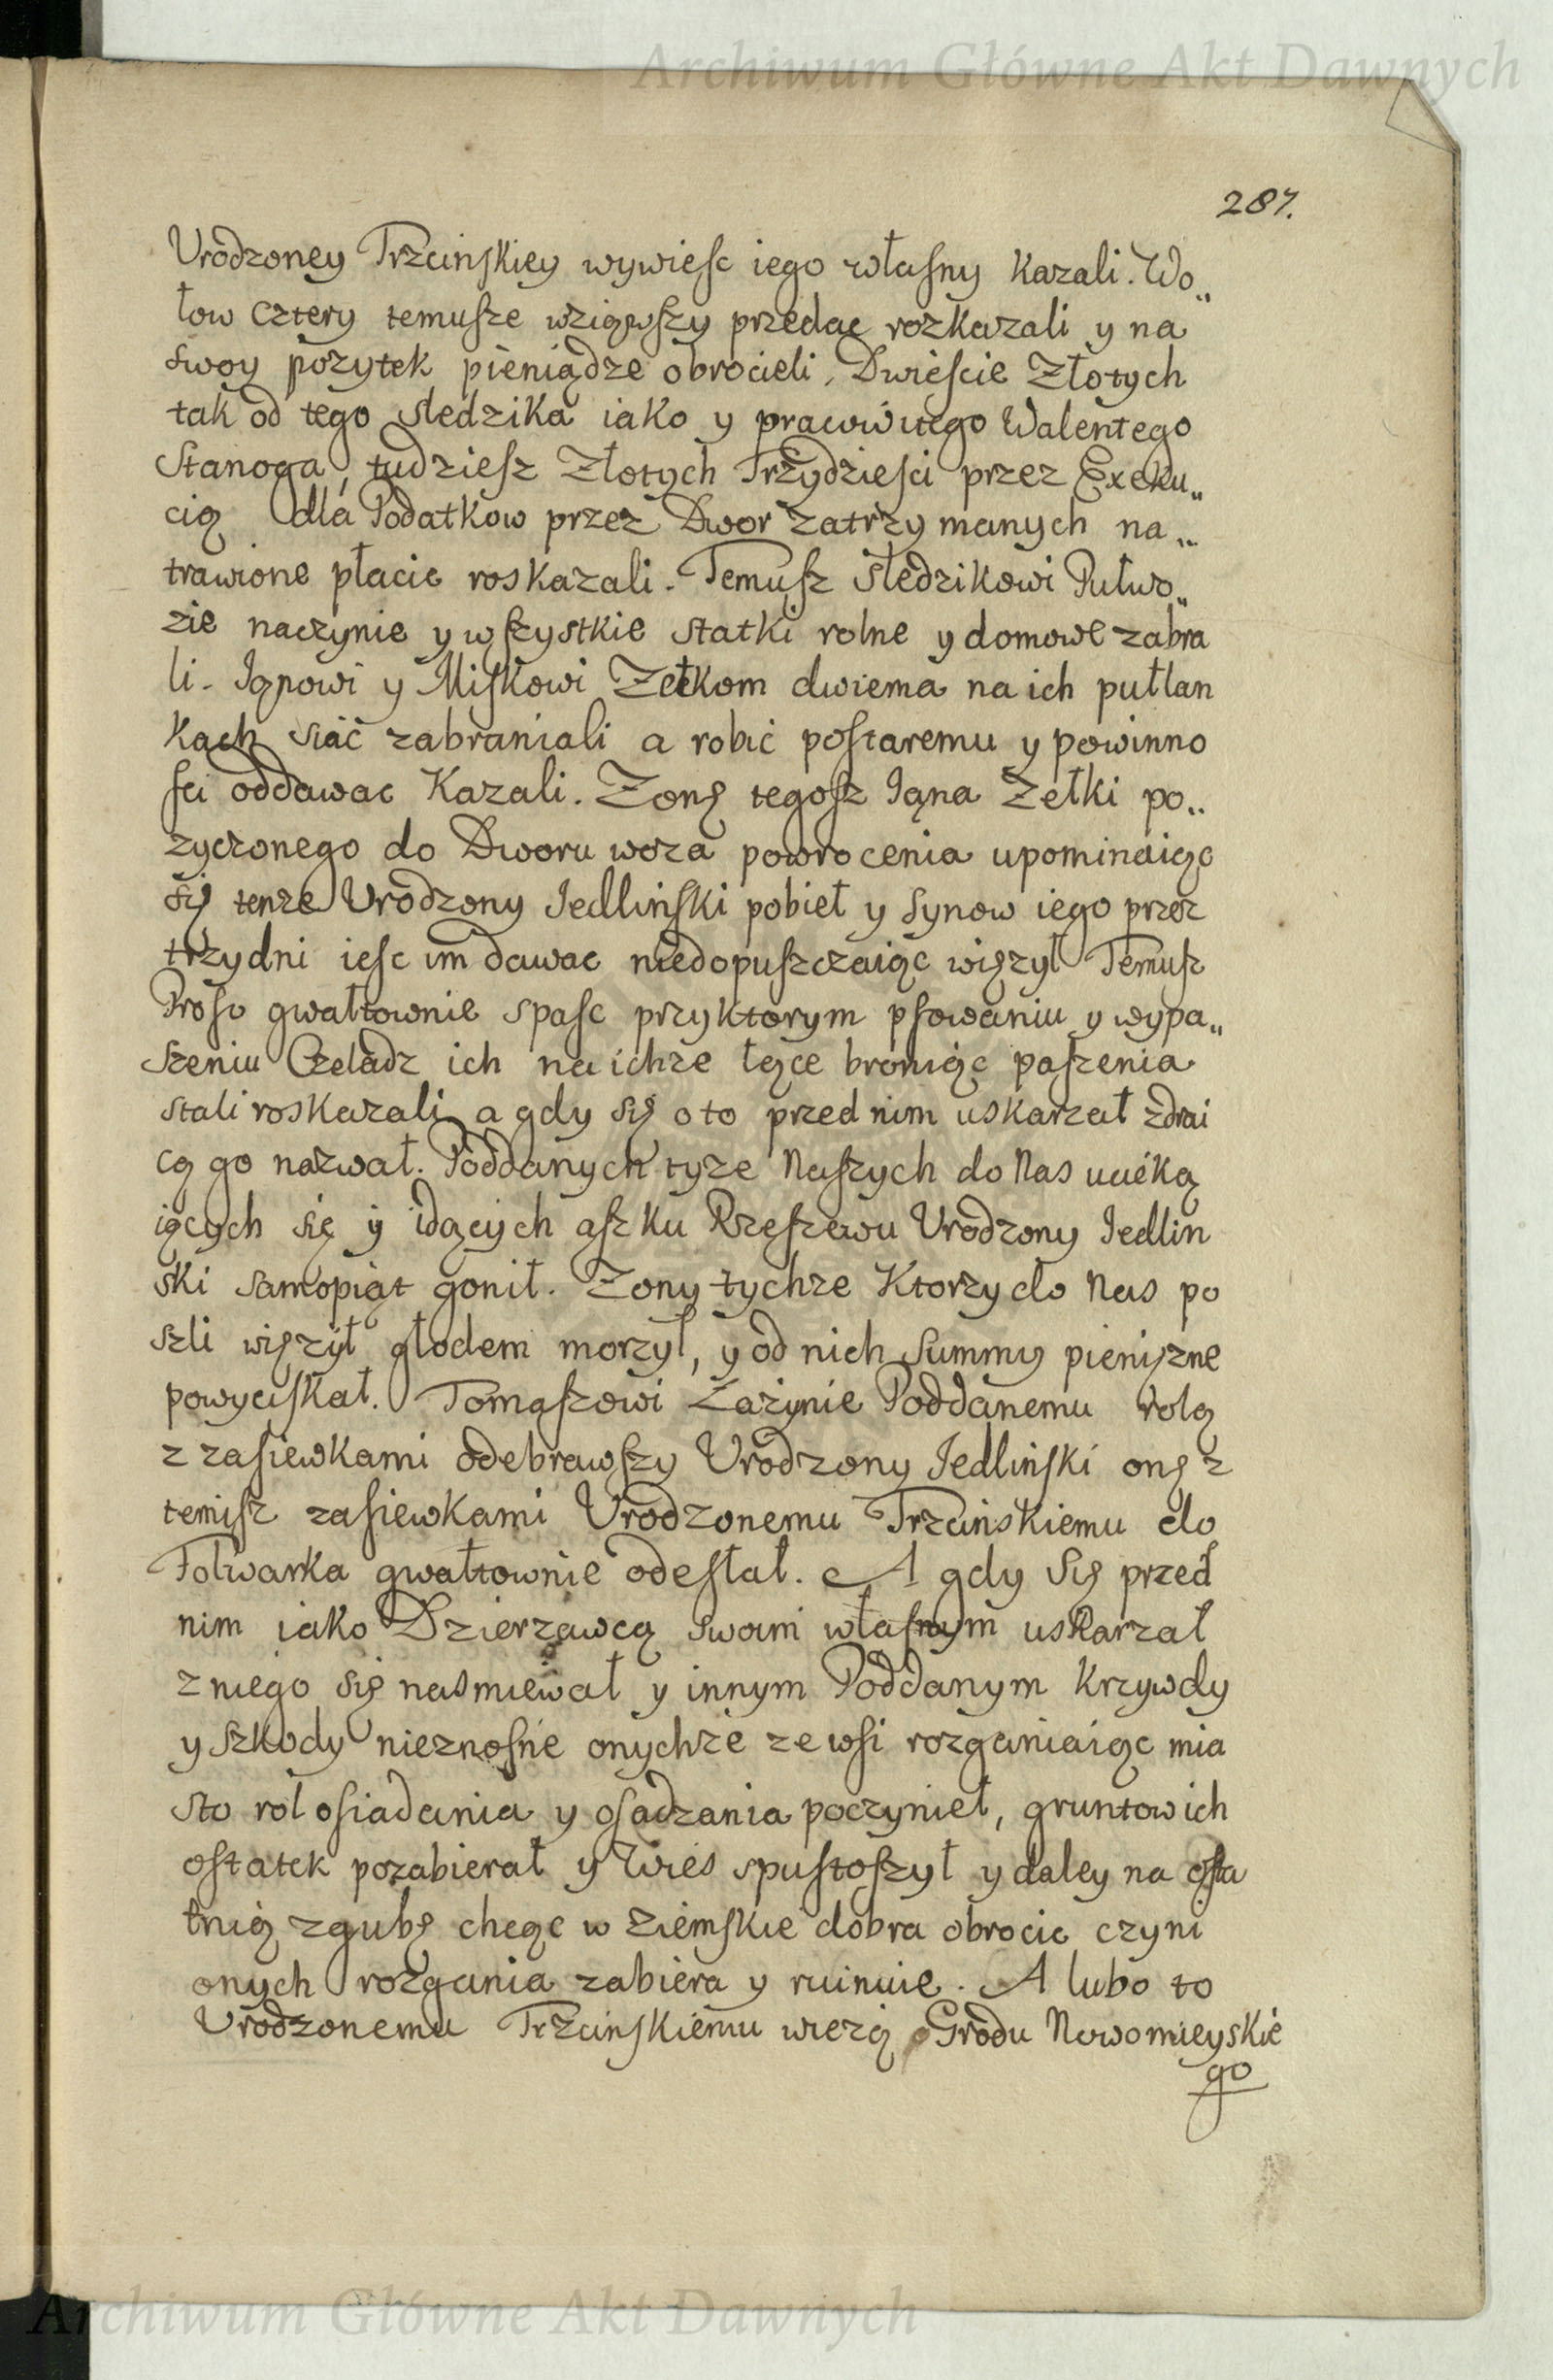 Archiwum Główne Akt Dawnych
287.
Urodzoney Trzcinskiey wywiesc iego własny kazali. Wo„
łow cztery temusze wziąwszy przedac rozkazali y na
swoy pozytek pieniądze obrocieli, Dwiescie Złotych
tak od tego sledzika iako y pracowitego Walentego
Stanoga, tudziesz Złotych Trzydziesci przez Exeku„
cią dla Podatkow przez Dwor zatrzymanych na„
trawione płacic roskazali. Temusz sledzikowi Pułwo„
zie naczynie y wszystkie statki rolne y domowe zabra
li. Ianowi y Miskowi Zełkom dwiema na ich pułlan
kach siać zabraniali a robić postaremu y powinno
sci oddawac kazali. Zonę tegosz Iana Zełki po„
zyczonego do Dworu woza powrocenia upominaiąc
się tenze Urodzony Iedlinski pobieł y synow iego przez
trzy dni iesc im dawac niedopuszczaiąc więzył Temusz
Proso gwałtownie spasc przyktorym psowaniu y wypa„
szeniu Czeladz ich na ichze łące broniąc paszenia
stali roskazali a gdy się oto przed nim uskarzał zdrai
cą go nazwał. Poddanych tyze Naszych do Nas uciéka
iących się y idących asz ku Rzeszewu Urodzony Iedlin
ski samopiąt gonił. Zony tychze ktorzy do Nas po
szli więzył głodem morzył, y od nich summy pienięzne
powyciskał. Tomaszowi Zazynie Poddanemu rolą
z zasiewkami odebrawszy Urodzony Iedlinski onę z
temisz zasiewkami Urodzonemu Trzcinskiemu do
Folwarka gwałtownie odesłał. A gdy się przed
nim iako Dzierzawcą swoim własnym uskarzał
z niego się nasmiewał y innym Poddanym krzywdy
y szkody nieznosne onychze ze wsi rozganiaiąc mia
sto rol osiadania y osadzania poczynieł, gruntow ich
ostatek pozabierał y Wies spustoszył y daley na osta
tnią zgubę chcąc w ziemskie dobra obrocic czyni
onych rozgania zabiera y ruinuie. A lubo to
Urodzonemu Trzcinskiemu wiezą Grodu Nowomieyskie
go
Archiwum Główne Akt Dawnych